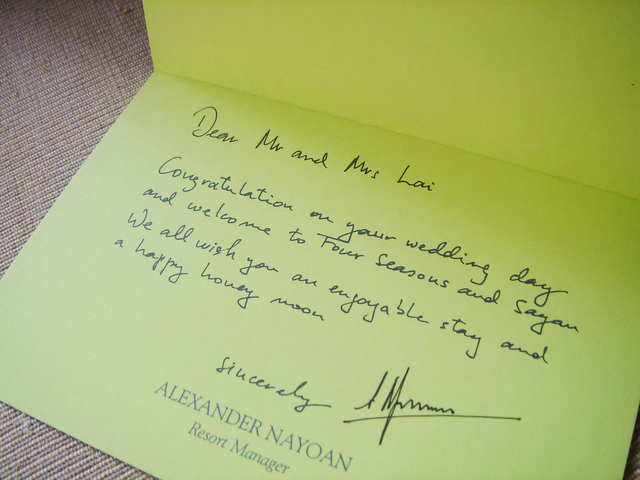 Dear Mr and Mrs Lai
Congratulation on your wedding day
and welcome to Four Seasons and Sayan
We all wish you an enjoyable stay and
a happy honey moon
sincerely
ALEXANDER NAYOAN
Resort Manager